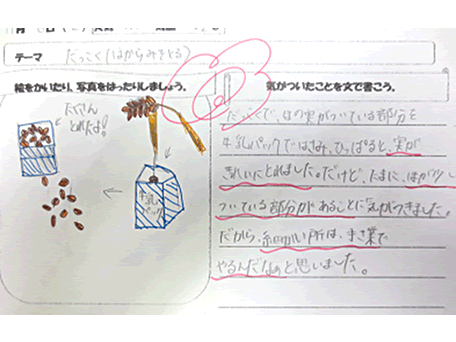 テーマ だっこく(はからみをとる)
絵をかいたり、写真をはったりしましょう。
気がついたことを文で書こう。
たくさん
とれたよ!
牛乳
パック
だっこくで、ほの実がついている部分を
牛乳パックではさみ、ひっぱると、実が
きれいにとれました。だけど、たまに、はが少し
ついている部分があることに気がつきました。
だから、細かい所は、手さ業で
やるんだなぁと思いました。